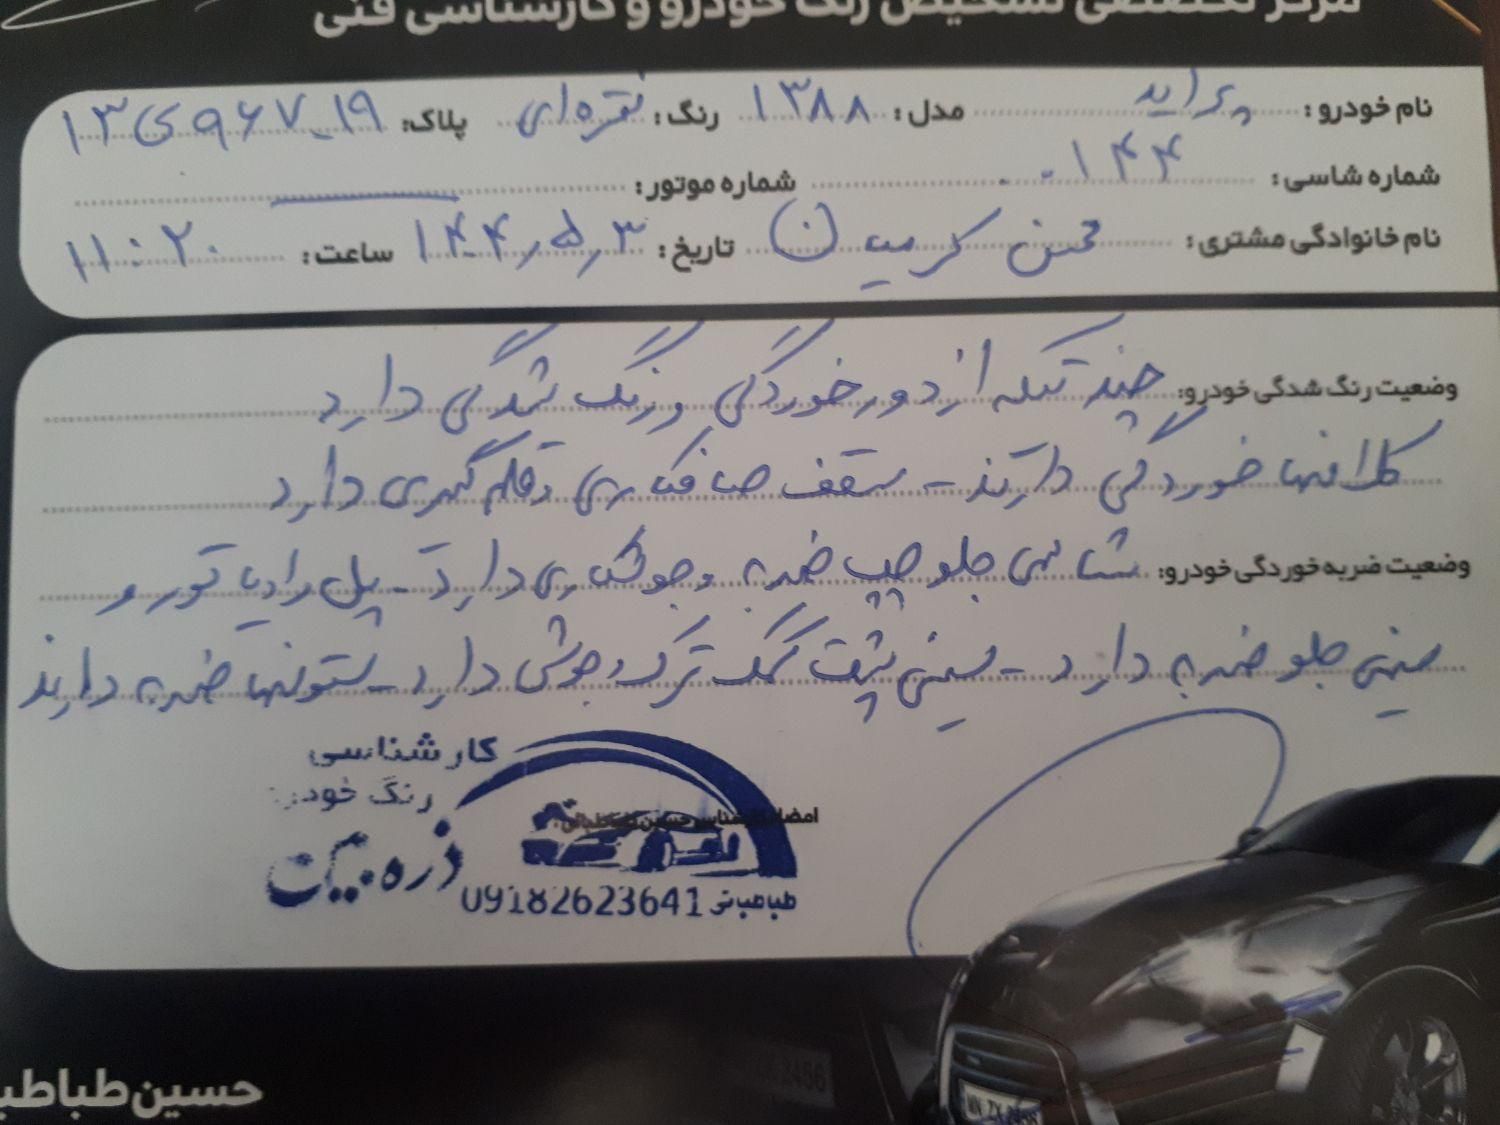 مرکز تخصصی تشخیص رنگ خودرو و کارشناسی فنی
نام خودرو: پراید مدل: ۱۳۸۸ رنگ: نقره‌ای پلاک: ۱۳ی۹۶۷-۱۹
شماره شاسی: ۰۰۱۴۴ شماره موتور:
نام خانوادگی مشتری: محسن تاریخ: ۱۴۰۴/۵/۳ ساعت: ۱۱:۲۰
وضعیت رنگ شدگی خودرو: چند تیکه از دور خوردگی و رنگ شدگی دارد
کلافها خوردگی دارند - سقف صافکاری و قلم گیری دارد
وضعیت ضربه خوردگی خودرو: شاسی جلو چپ ضربه و جوشکاری دارد - پل رادیاتور و
سینی جلو ضربه دارد - سینی پشت کمک ترک و جوش دارد - ستونها ضربه دارند
کارشناسی
رنگ خودرو
امضاء کارشناس حسین طباطبائی:
ذره بین
طباطبائی 09182623641
حسین طباطب